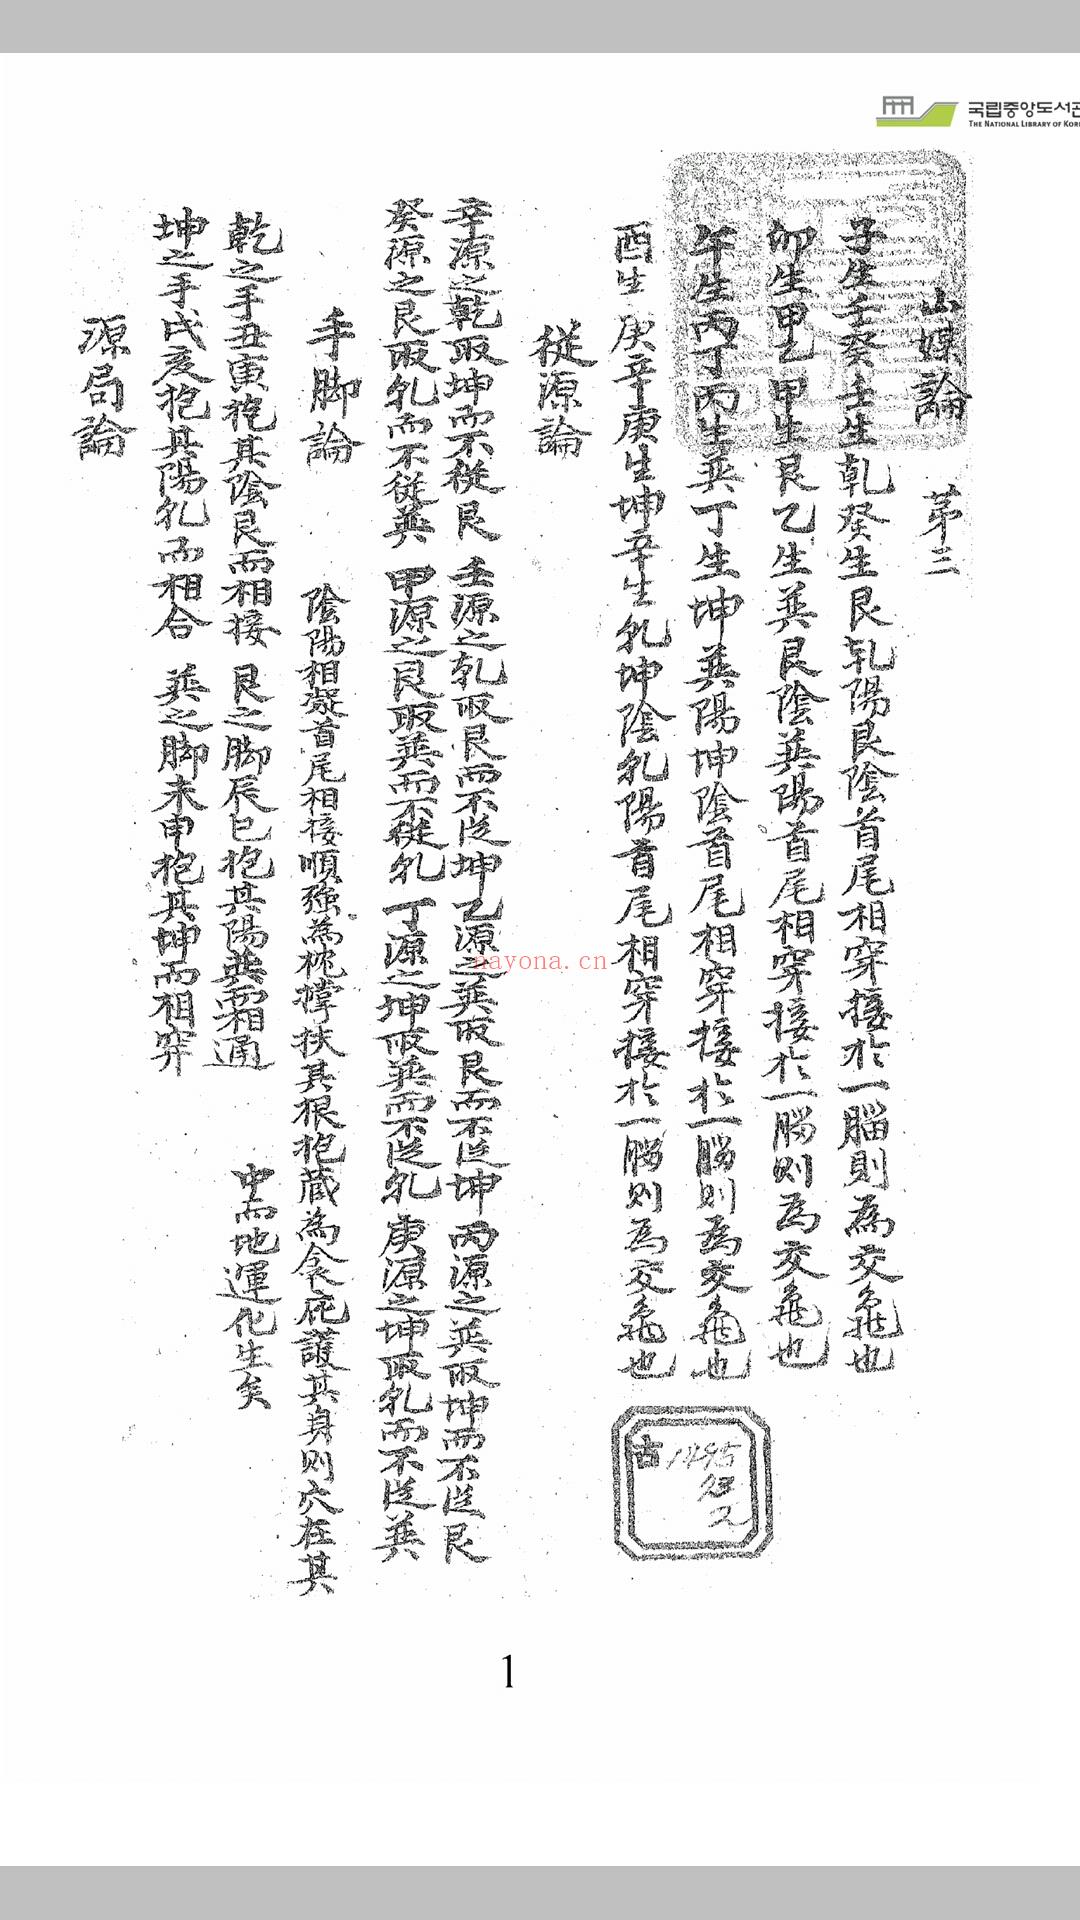 국립중앙도서관
THE NATIONAL LIBRARY OF KOR
山媒論 苐三
子生壬癸壬生乾癸生艮乹陽艮陰首尾相穿接於一腦則為交龜也
卯生甲乙甲生艮乙生巽艮陰巽陽首尾相穿接於一腦则為交龜也
午生丙丁丙生巽丁生坤巽陽坤陰首尾相穿接於一腦則為交龜也
酉生庚辛庚生坤辛生乹坤陰乹陽首尾相穿接於一腦則為交龜也
從源論
辛源之乾取坤而不從艮 壬源之乹取艮而不从坤 乙源之巽取艮而不从坤 丙源之巽取坤而不从艮
癸源之艮取乹而不從巽 甲源之艮取巽而不從乹 丁源之坤取巽而不从乹 庚源之坤取乹而不从巽
手脚論 陰陽相凝首尾相接順強為枕撑扶其根抱藏為衾庇護其身则穴在其
乾之手丑寅抱其陰艮而相接 艮之脚辰巳抱其陽巽而相通 中而地運化生矣
坤之手戌亥抱其陽乹而相合 巽之脚未申抱其坤而相穿
源局論
古1495
nayona.cn
1